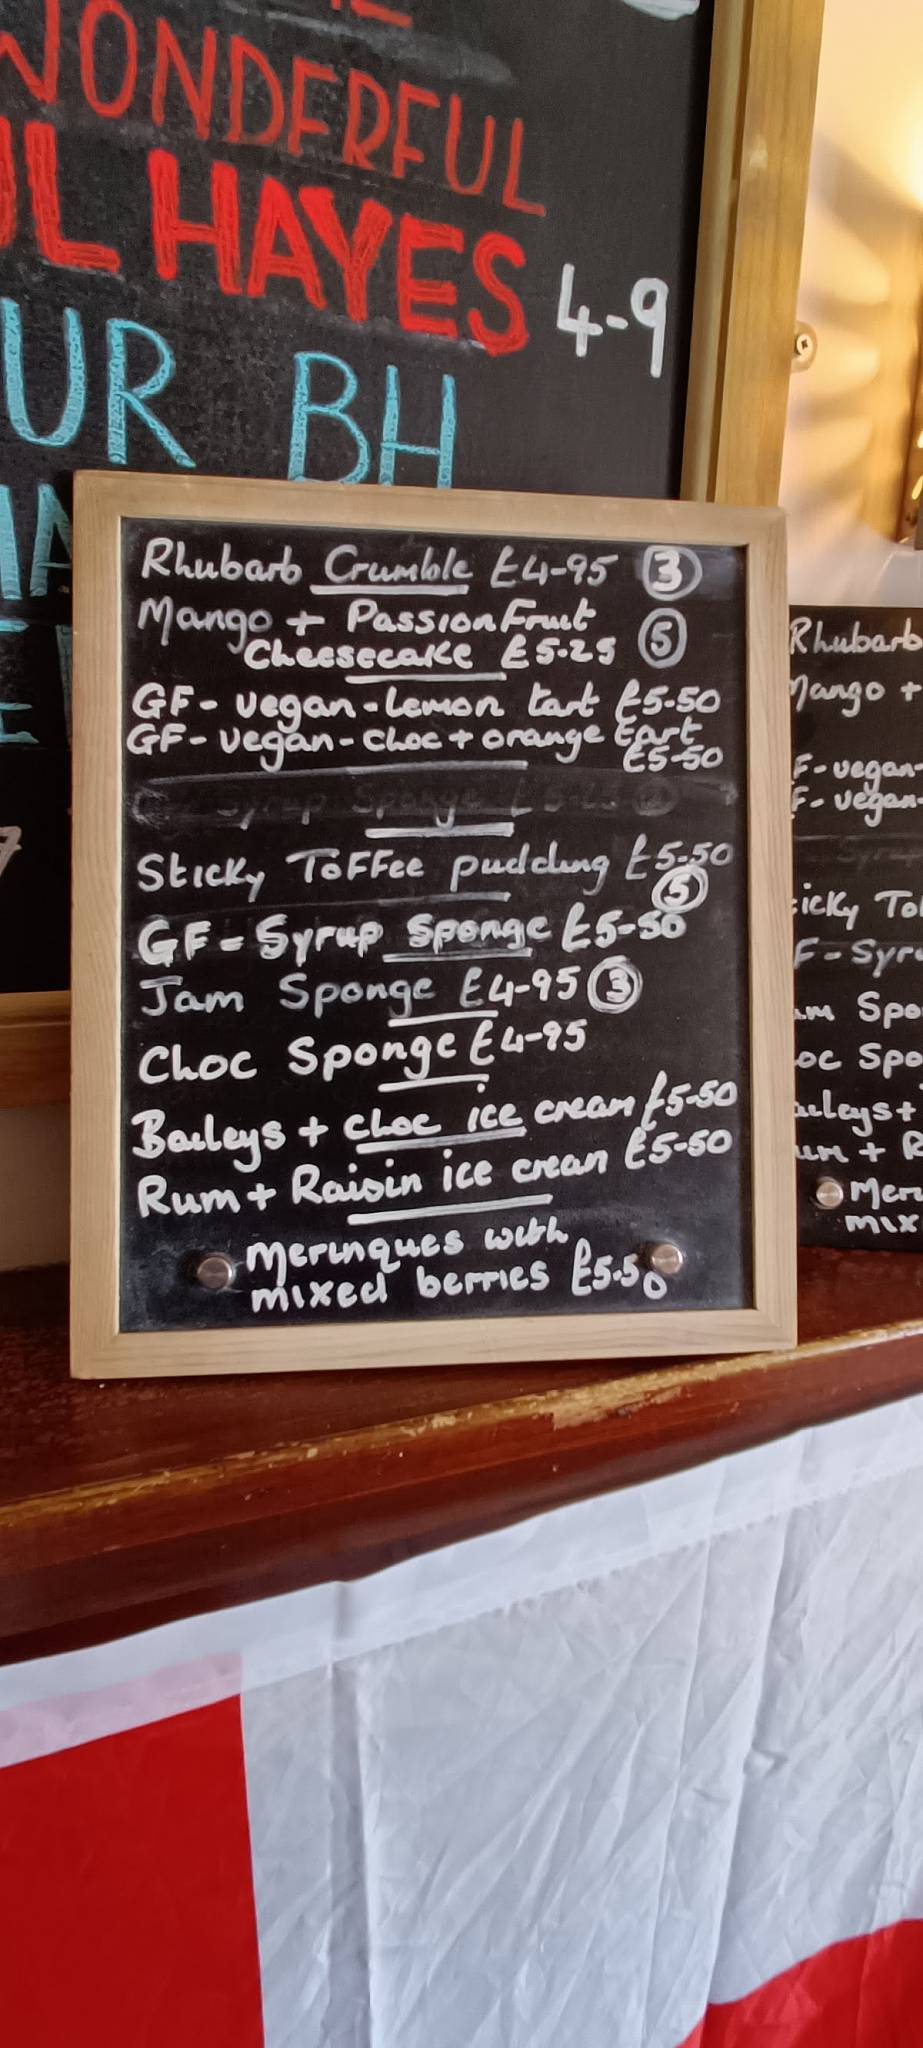 WONDERFUL
HAYES
4-9
UR BH
Rhubarb Crumble £4-95 3
Mango + Passion Fruit
Cheesecake £5.25 5
GF - vegan - Lemon tart £5-50
GF - vegan - choc + orange tart
£5-50
Syrup Sponge
Sticky Toffee pudding £5.50
5
GF - Syrup Sponge £5-50
Jam Sponge £4-95 3
Choc Sponge £4-95
Baileys + choc ice cream £5-50
Rum + Raisin ice cream £5-50
Meringues with
mixed berries £5.50
Rhubarb
Mango +
F - vegan -
F - vegan
icky To
F - Syru
m Spo
oc Spo
aileys +
um + R
Mer
mix